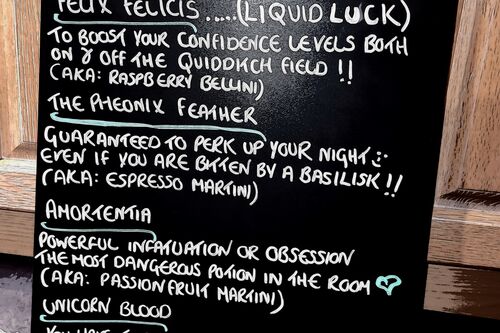 FELIX FELICIS.....(LIQUID LUCK)
TO BOOST YOUR CONFIDENCE LEVELS BOTH
ON & OFF THE QUIDDITCH FIELD !!
(AKA: RASPBERRY BELLINI)
THE PHEONIX FEATHER
GUARANTEED TO PERK UP YOUR NIGHT
EVEN IF YOU ARE BITTEN BY A BASILISK !!
(AKA: ESPRESSO MARTINI)
AMORTENTIA
POWERFUL INFATUATION OR OBSESSION
THE MOST DANGEROUS POTION IN THE ROOM
(AKA: PASSIONFRUIT MARTINI)
UNICORN BLOOD